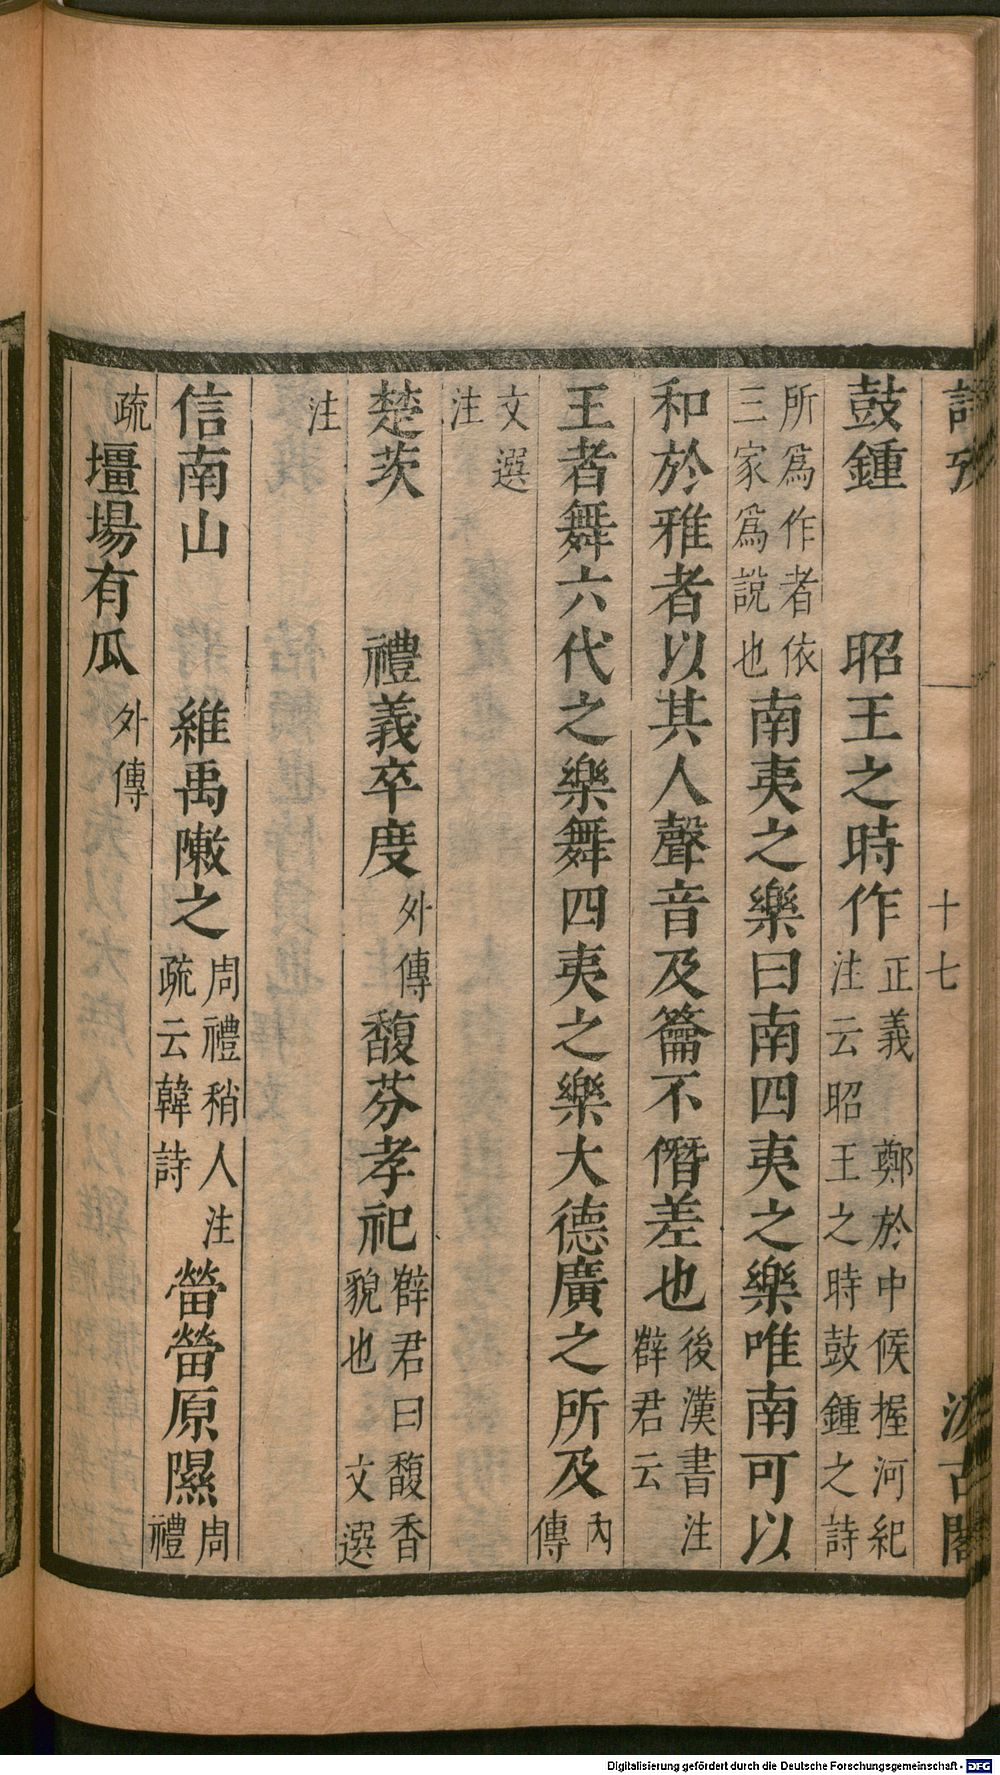 詩攷 十七 汲古閣
鼓鍾 昭王之時作 正義 鄭於中候握河紀
注云昭王之時鼓鍾之詩
所爲作者依
三家爲說也
南夷之樂曰南四夷之樂唯南可以
和於雅者以其人聲音及籥不僭差也 後漢書注
薛君云
王者舞六代之樂舞四夷之樂大德廣之所及 內
傳
文選
注
楚茨 禮義卒度 外傳 馥芬孝祀 薛君曰馥香
貌也 文選
注
信南山 維禹敶之 周禮稍人注
疏云韓詩
原隰 周
禮
疏 壃場有瓜 外傳
Digitalisierung gefördert durch die Deutsche Forschungsgemeinschaft - DFG